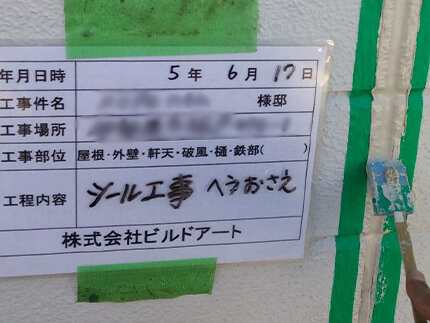 年月日時 5年 6月 17日
工事件名 様邸
工事場所
工事部位 屋根・外壁・軒天・破風・樋・鉄部( )
工程内容 シール工事 ヘラおさえ
株式会社ビルドアート